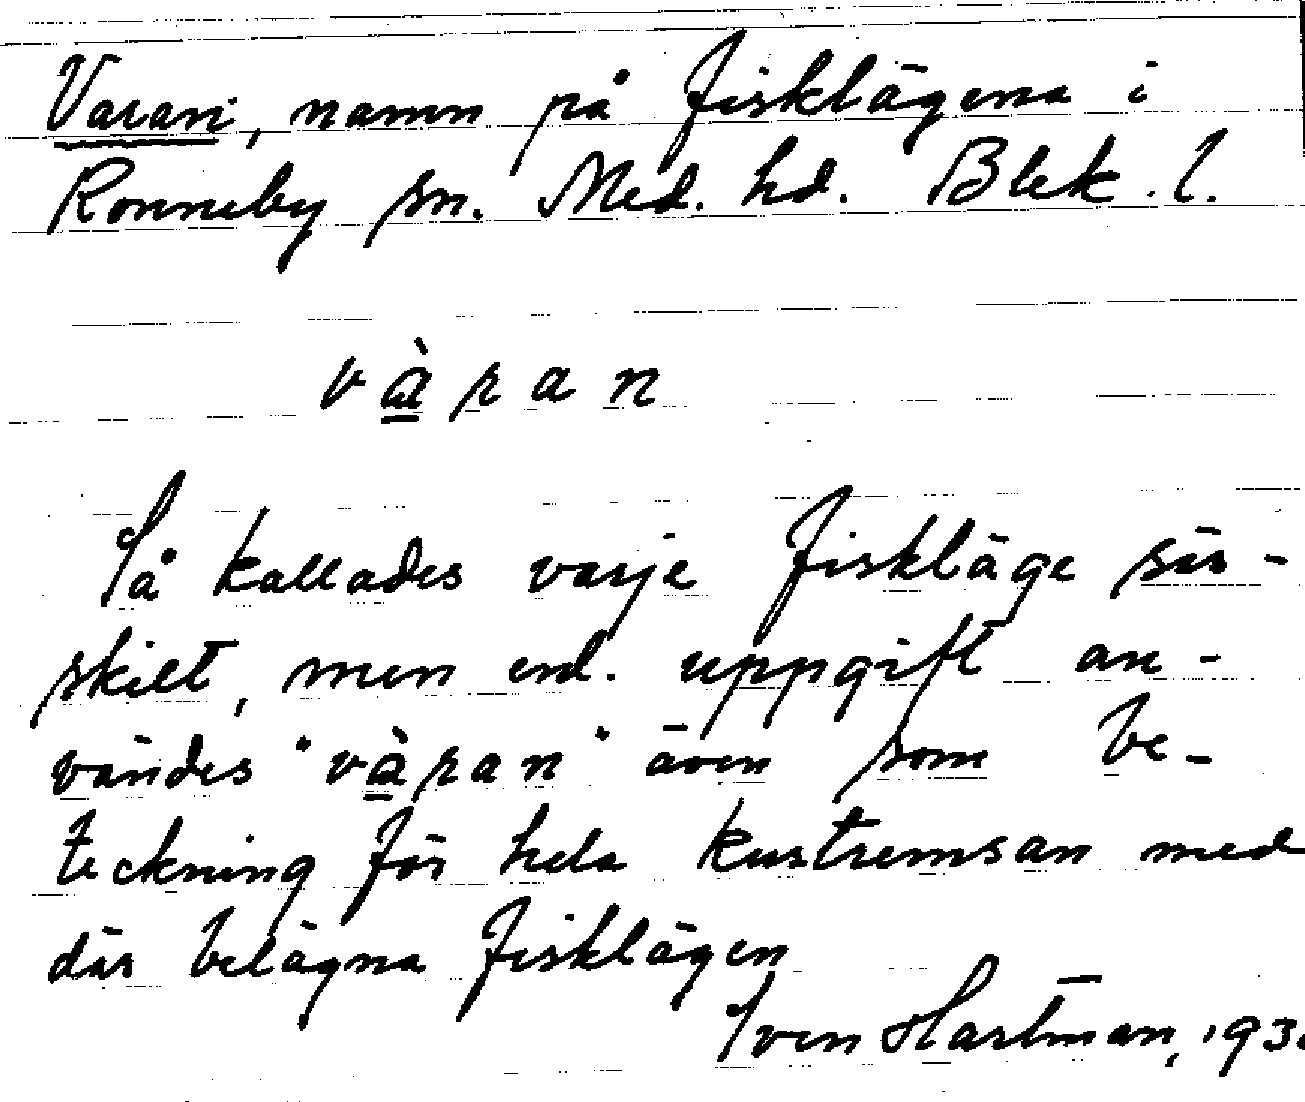 Varan, namn på fisklägena i
Ronneby sn. Med. hd. Blek. l.
v à r a n
Så kallades varje fiskläge sär-
skilt, men enl. uppgift an-
vändes "vàran" även som be-
teckning för hela kustremsan med
där belägna fisklägen
Sven Hartman, 193